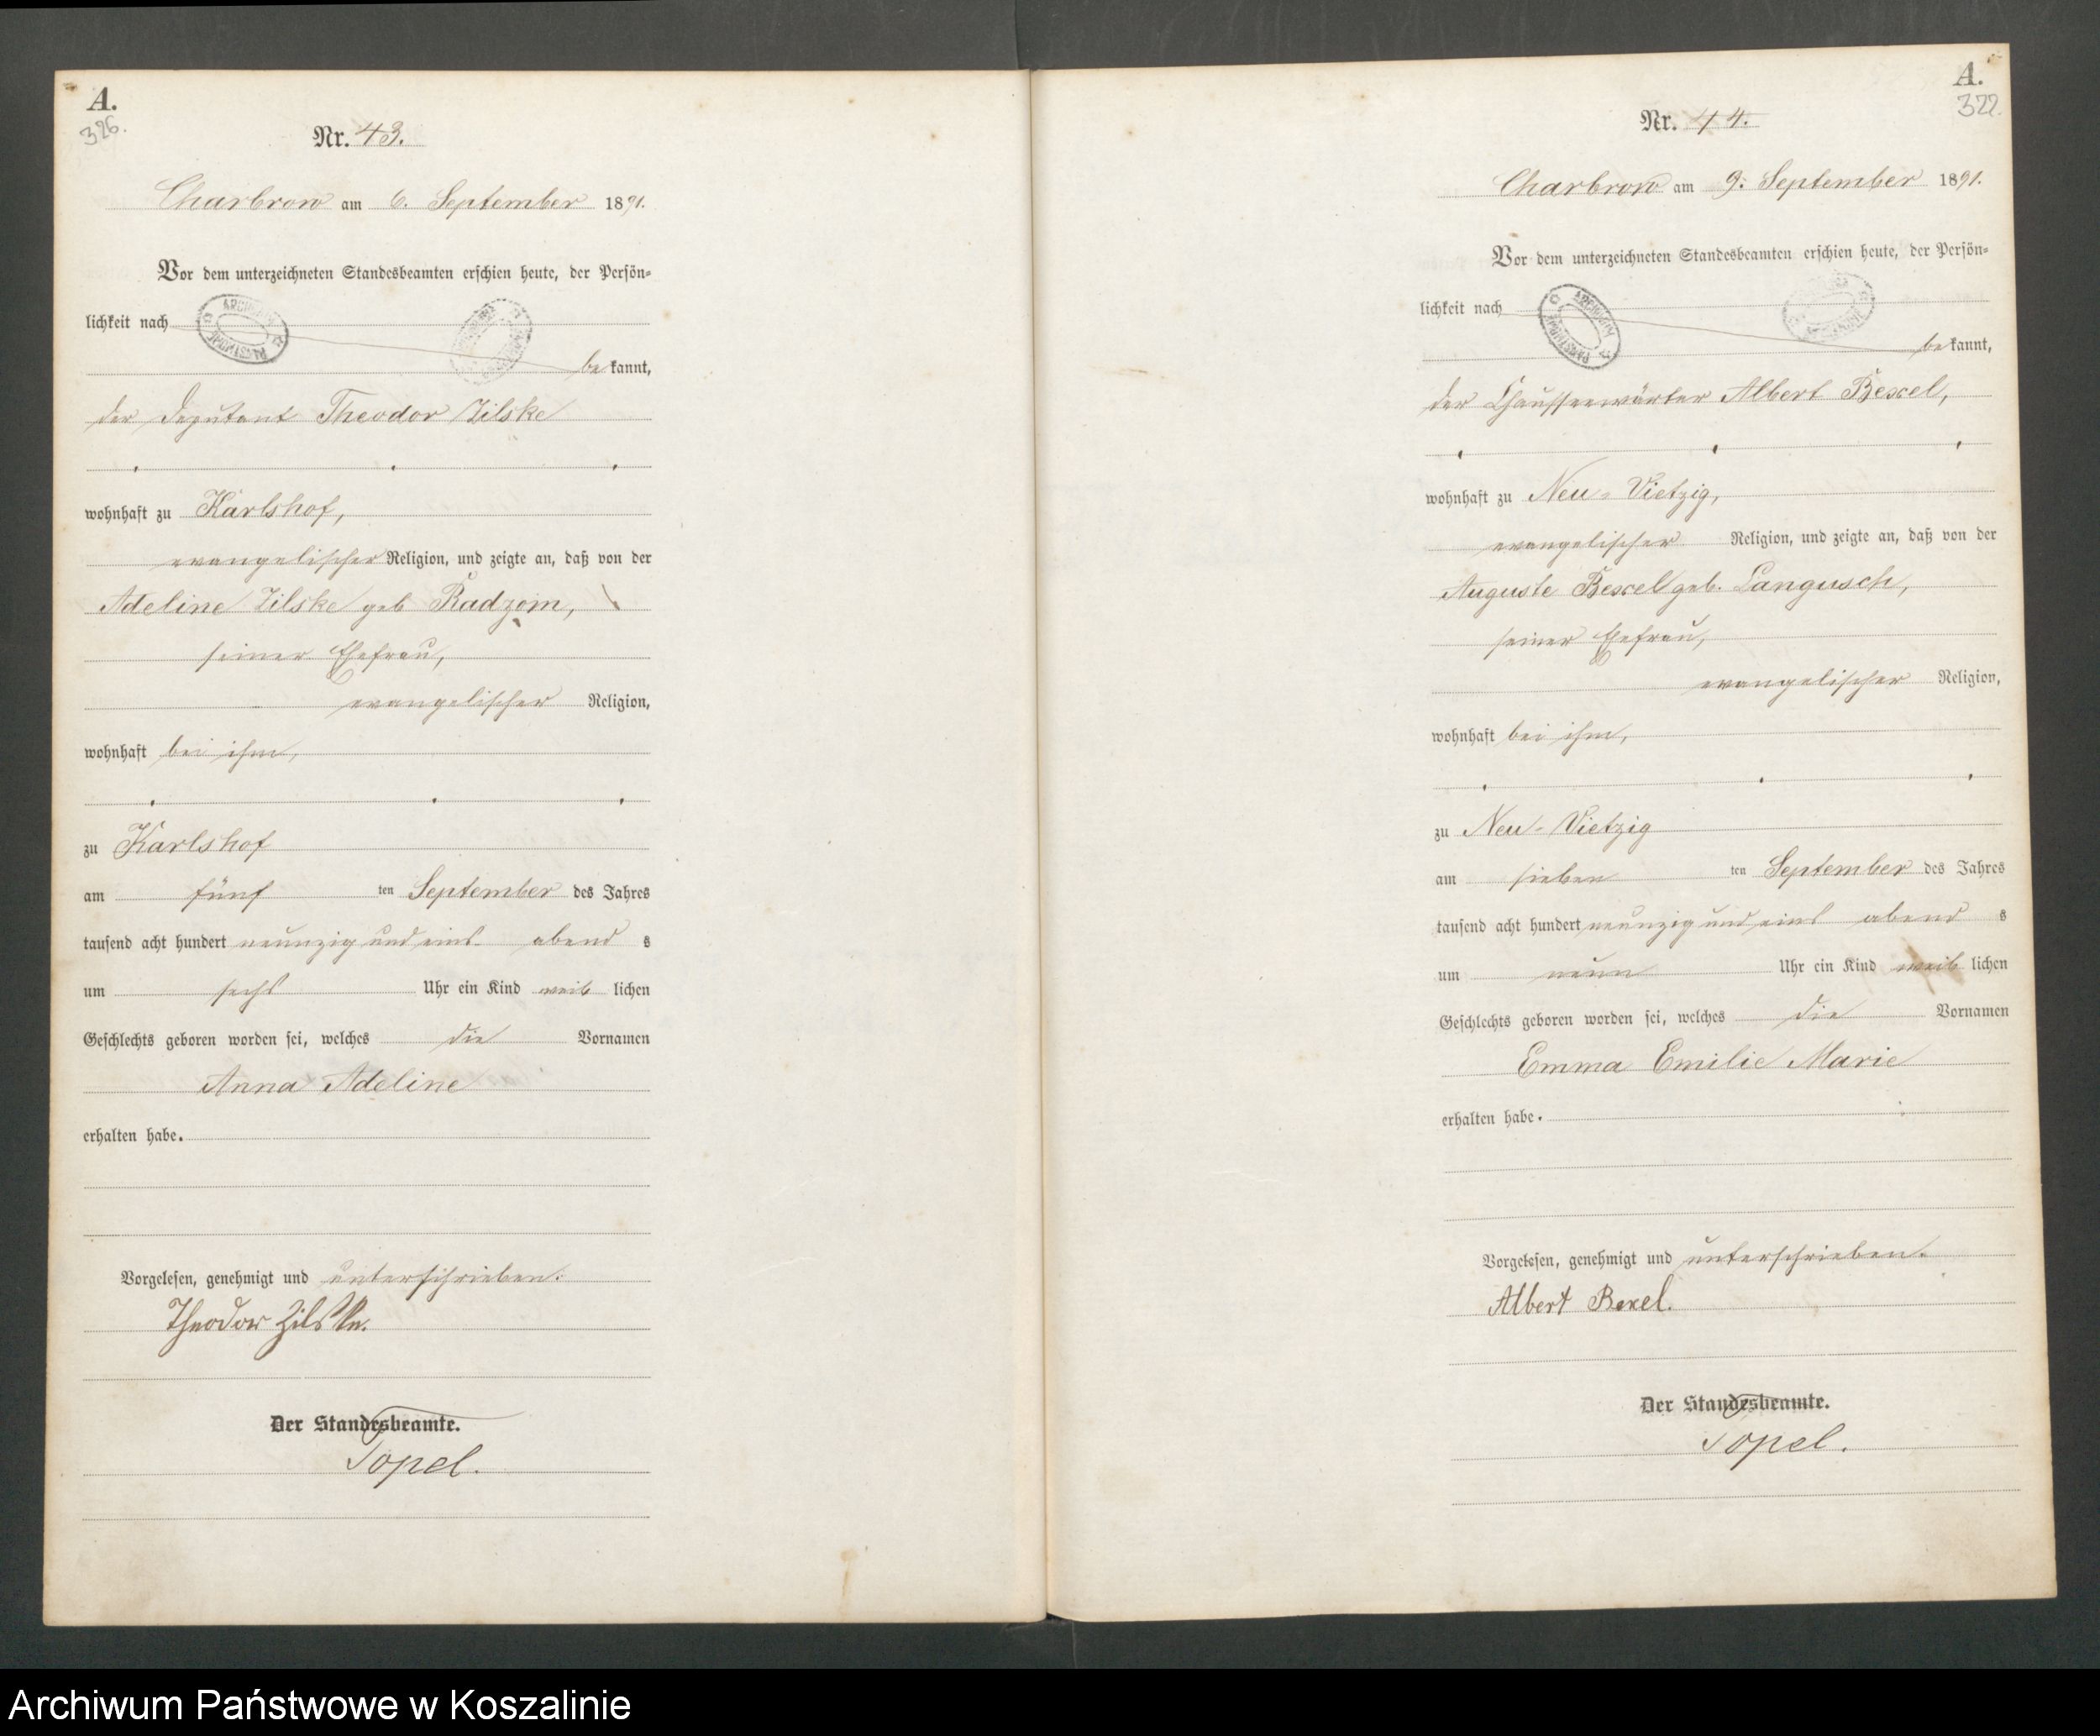 A.
326.
Nr. 43.
Charbrow am 6. September 1891.
Vor dem unterzeichneten Standesbeamten erschien heute, der Persön-
lichkeit nach
bekannt,
der Deputant Theodor Zilske
wohnhaft zu Karlshof,
evangelischer Religion, und zeigte an, daß von der
Adeline Zilske geb Radzom,
seiner Ehefrau,
evangelischer Religion,
wohnhaft bei ihm,
zu Karlshof
am fünf ten September des Jahres
tausend acht hundert neunzig und eins abend s
um sechs Uhr ein Kind weib lichen
Geschlechts geboren worden sei, welches die Vornamen
Anna Adeline
erhalten habe.
Vorgelesen, genehmigt und unterschrieben.
Theodor Zilske.
Der Standesbeamte.
Topel.
A.
322.
Nr. 44.
Charbrow am 9. September 1891.
Vor dem unterzeichneten Standesbeamten erschien heute, der Persön-
lichkeit nach
bekannt,
der Chausseewärter Albert Bexel,
wohnhaft zu Neu-Vietzig,
evangelischer Religion, und zeigte an, daß von der
Auguste Bexel geb. Langusch,
seiner Ehefrau,
evangelischer Religion,
wohnhaft bei ihm,
zu Neu-Vietzig
am sieben ten September des Jahres
tausend acht hundert neunzig und eins abend s
um neun Uhr ein Kind weib lichen
Geschlechts geboren worden sei, welches die Vornamen
Emma Emilie Marie
erhalten habe.
Vorgelesen, genehmigt und unterschrieben.
Albert Bexel.
Der Standesbeamte.
Topel.
Archiwum Państwowe w Koszalinie